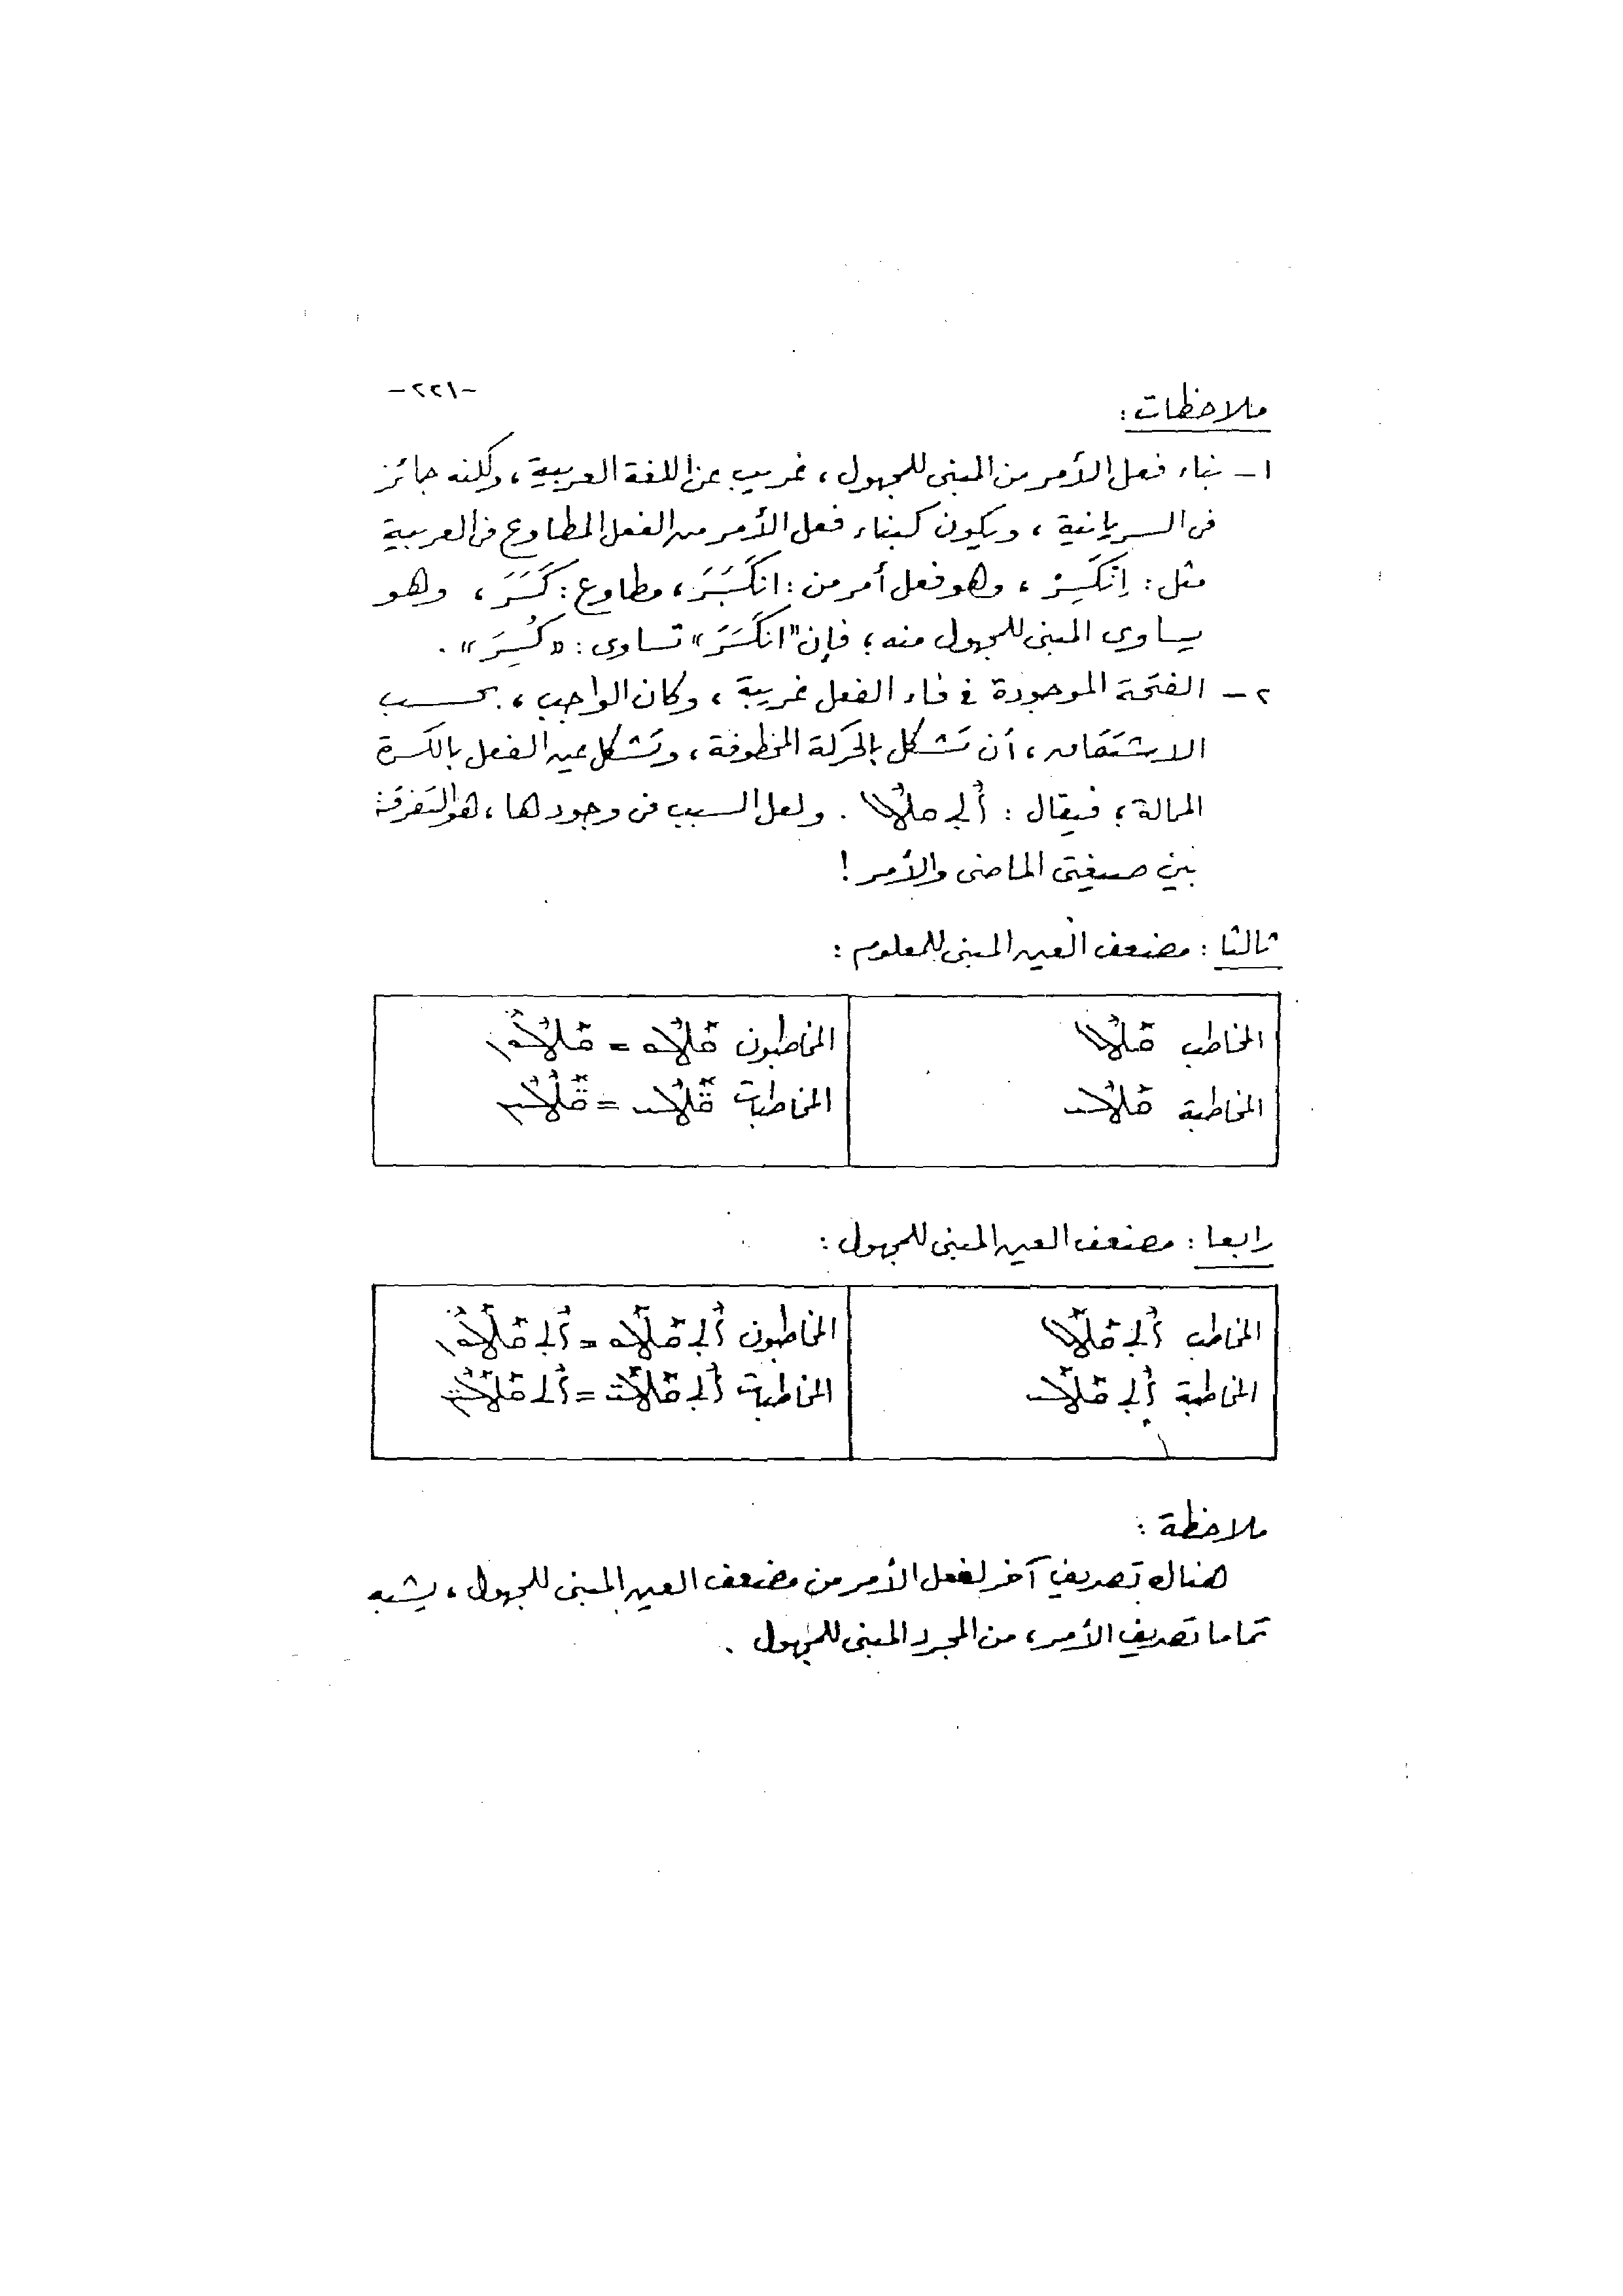 -٢٢١-
ملاحظات:
١- بناء فعل الأمر من المبنى للمجهول، غريب عن اللغة العربية، ولكنه جائز
فى السريانية، ويكون كبناء فعل الأمر من الفعل المطاوع فى العربية
مثل: اِنْكَسِرْ، وهو فعل أمر من: انكَسَرَ، مطاوع: كَسَرَ، وهو
يساوى المبنى للمجهول منه؛ فإن "انكَسَرَ" تساوى: «كُسِرَ».
٢- الفتحة الموجودة فى فاء الفعل غريبة، وكان الواجب، بحسب
الاشتقاق، أن تشكل بالحركة المخطوفة، وتشكل عين الفعل بالكسرة
الممالة؛ فيقال: . ولعل السبب فى وجودها، هو التفرقة
بين صيغتى الماضى والأمر!
ثالثا: مضعف العين المبنى للمعلوم:
المخاطب ܩܰܛܶܠ
المخاطبة ܩܰܛܶܠܝ
المخاطبون
المخاطبات
رابعا: مضعف العين المبنى للمجهول:
المخاطب
المخاطبة
المخاطبون
المخاطبات
ملاحظة:
هناك تصريف آخر لفعل الأمر من مضعف العين المبنى للمجهول، يشبه
تماما تصريف الأمر، من المجرد المبنى للمجهول.